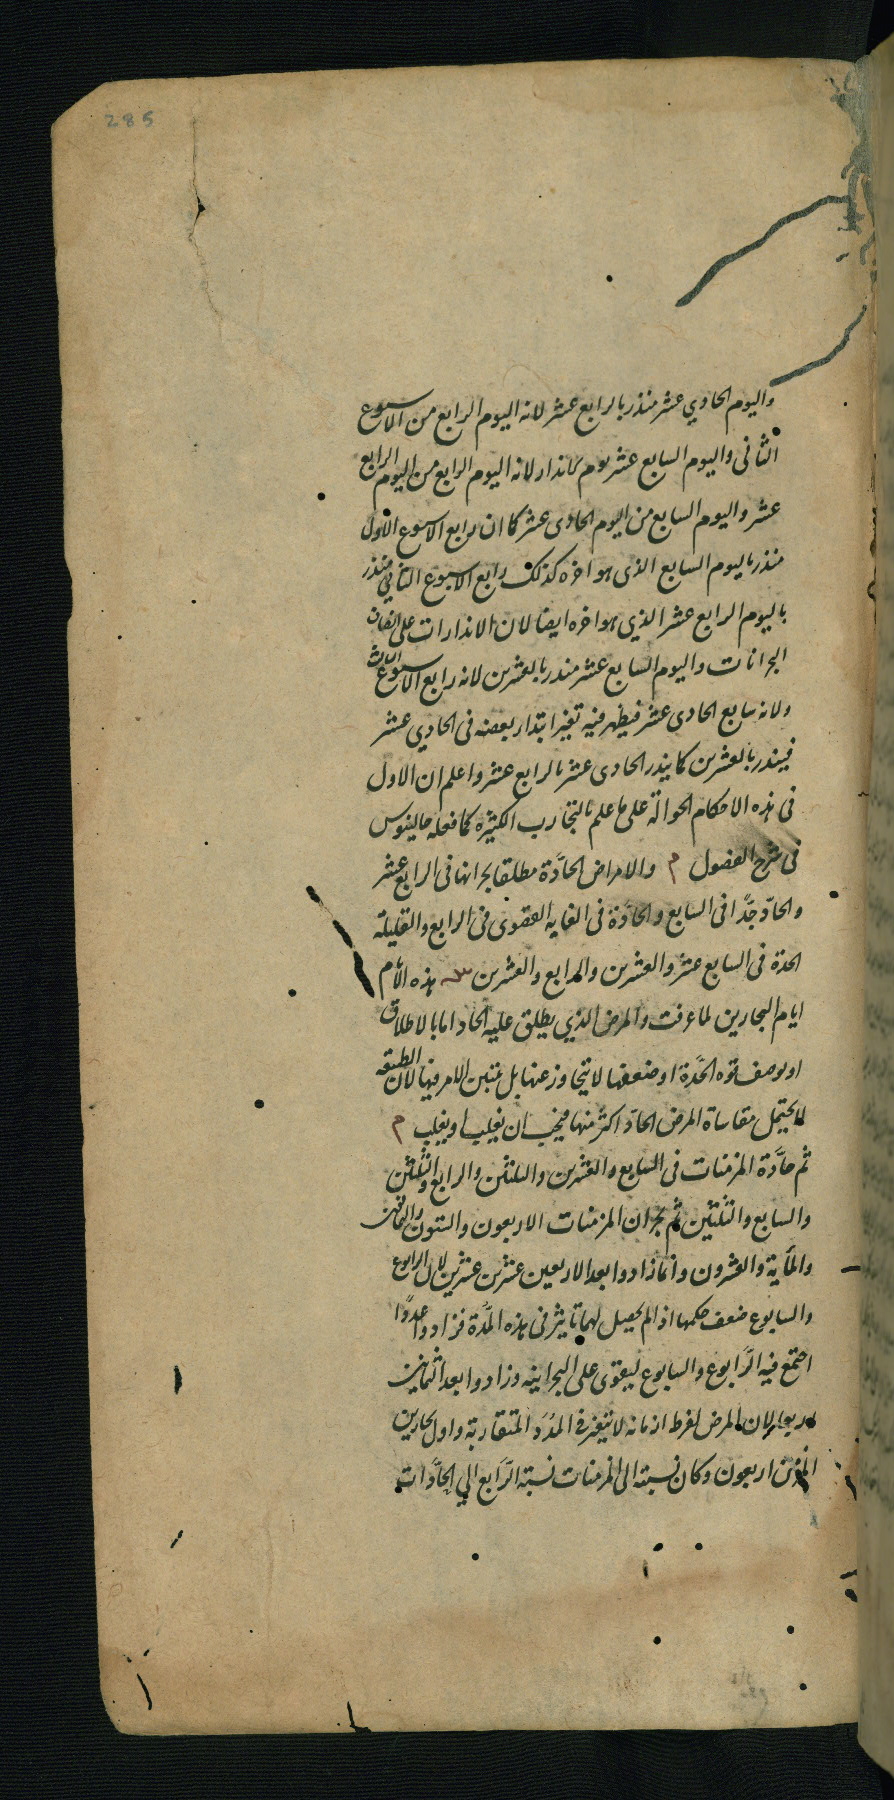 285
واليوم الحادي عشر منذر بالرابع عشر لانه اليوم الرابع من الاسبوع
الثاني واليوم السابع عشر يوم انذار لانه اليوم الرابع من اليوم الرابع
عشر واليوم السابع من اليوم الحادى عشر كما ان رابع الاسبوع الاول
منذر باليوم السابع الذى هو اخره كذلك رابع الاسبوع الثاني منذر
باليوم الرابع عشر الذي هو اخره ايضا لان الانذارات على
البحرانات واليوم السابع عشر منذر بالعشرين لانه رابع الاسبوع الثالث
ولانه سابع الحادى عشر فيظهر فيه تغير ابتدا بعضه فى الحادي عشر
فينذر بالعشرين كما ينذر الحادى عشر بالرابع عشر واعلم ان الاول
فى هذه الاحكام الحوالة على ما علم بالتجارب الكثيرة كما فعله جالينوس
فى شرح الفصول م والامراض الحادّة مطلقا بحرانها فى الرابع عشر
والحادّ جدًّا فى السابع والحادّة فى الغاية القصوى فى الرابع والقليلة
الحدة فى السابع عشر والعشرين والرابع والعشرين هذه الايام
ايام البحارين لما عرفت والمرض الذي يطلق عليه الحاد اما بالاطلاق
او بوصف قوة الحدّة او ضعفها لا يتجاوز عنها بل يتبين الامر فيها لان الطبيعة
لا يحتمل مقاساة المرض الحادّ اكثر منها فيجب ان يغلب او يغلب م
ثم حادّة المزمنات فى السابع والعشرين والثلثين والرابع والثلثين
والسابع والثلثين ثم بحران المزمنات الاربعون والستون والثمانون
والمأية والعشرون وانما زادوا بعد الاربعين عشرين عشرين لان الرابوع
والسابوع ضعف حكمها اذ لم يحصل لهما تاثير فى هذه المدّة فزادوا عددًا
اجتمع فيه الرابوع والسابوع ليقوى على البحرانية وزادوا بعد الثمانين
اربعين لان المرض لفرط ازمانه لا يتغير فى المدد المتقاربة واول بحارين
المزمن اربعون وكان نسبته الى المزمنات نسبة الرّابع الي الحادّات